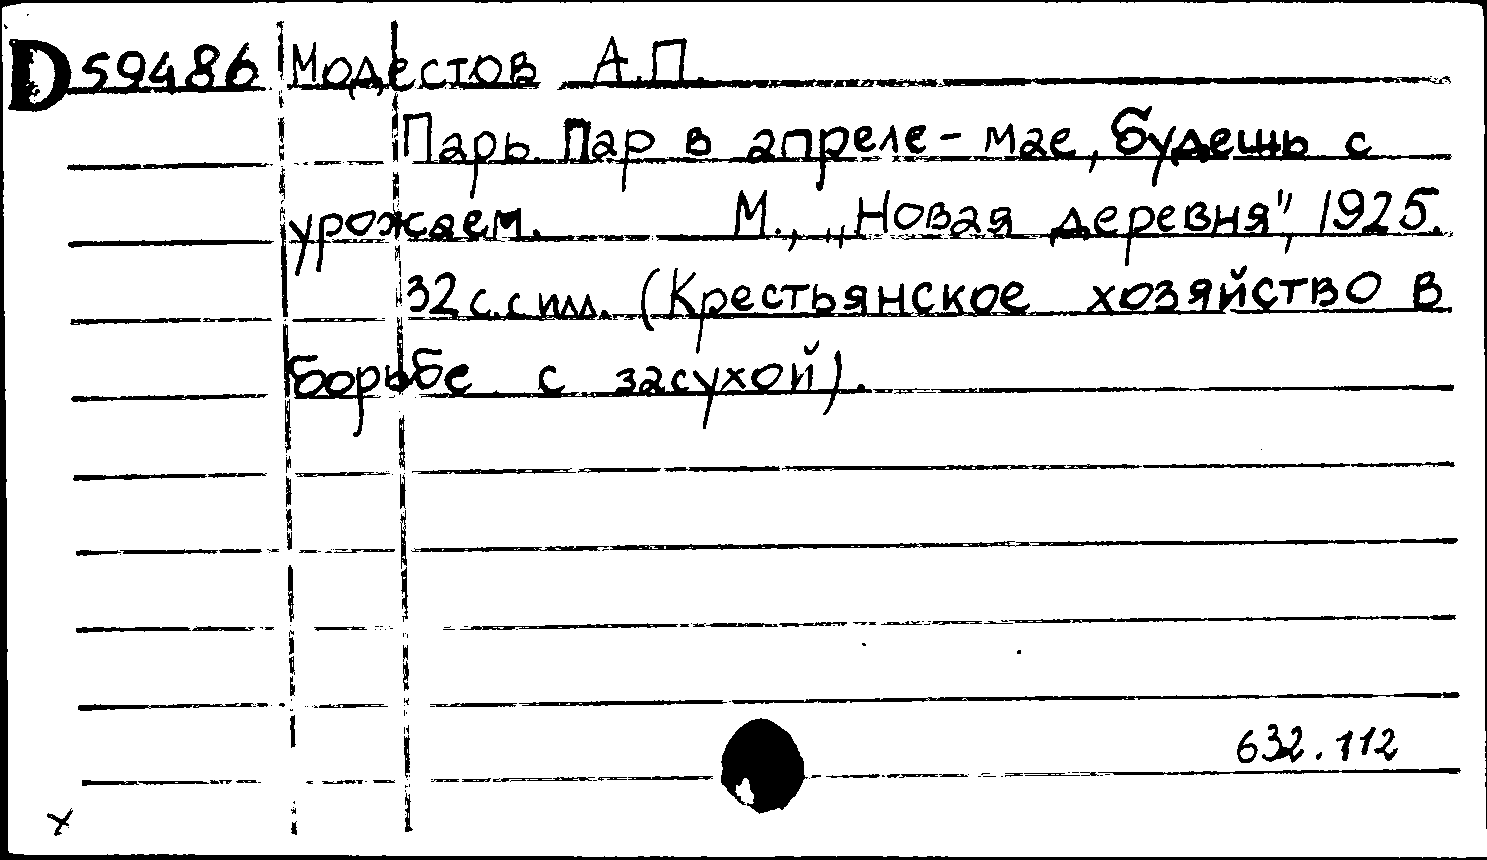 D 59486 Модестов А.П.
Парь пар в апреле - мае, будешь с
урожаем. М., „Новая деревня", 1925.
32 с. с илл. (Крестьянское хозяйство в
борьбе с засухой).
632.112
x